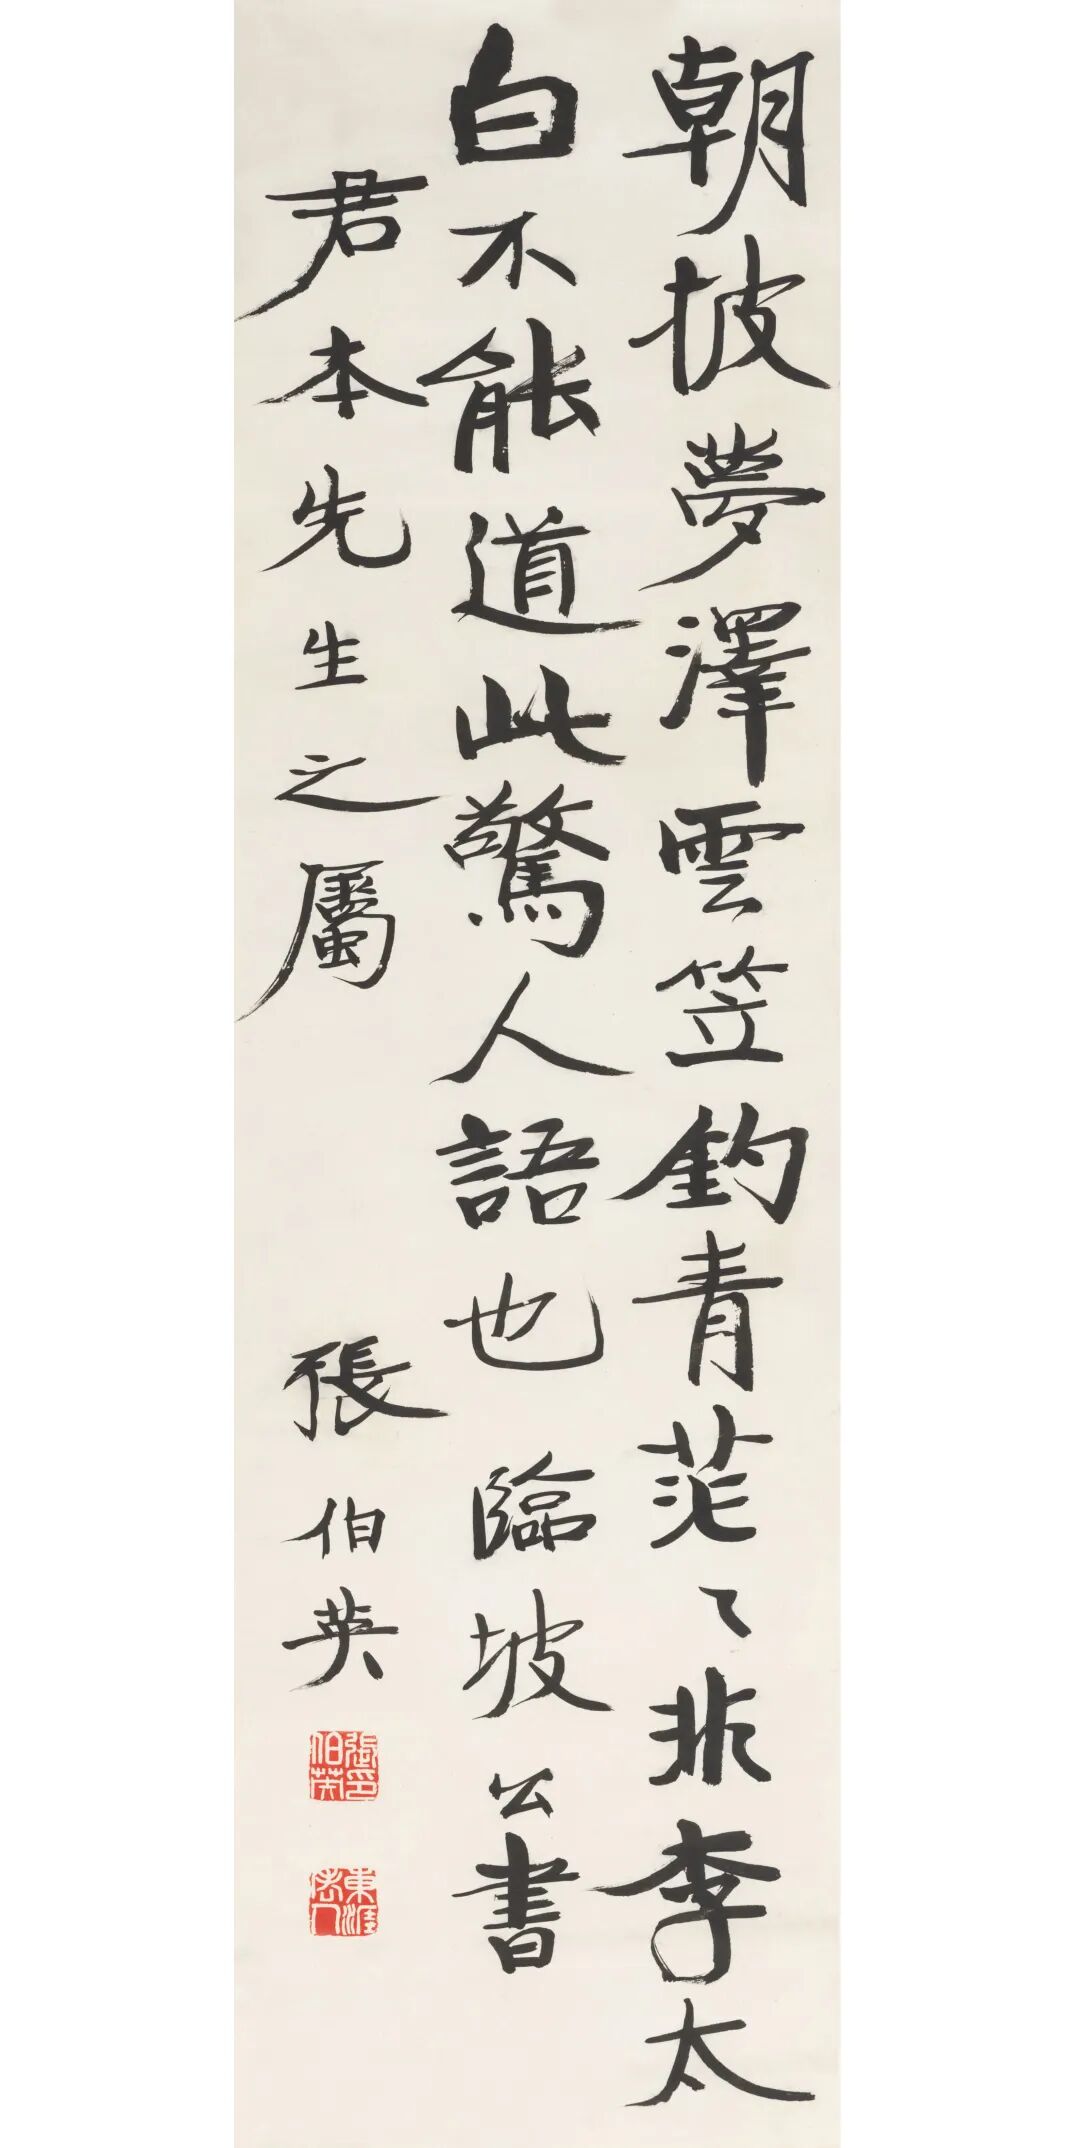 朝披夢澤雲笠釣青茫〻非李太
白不能道此驚人語也臨坡公書
君本先生之屬 張伯英
張伯英印
東涯老人